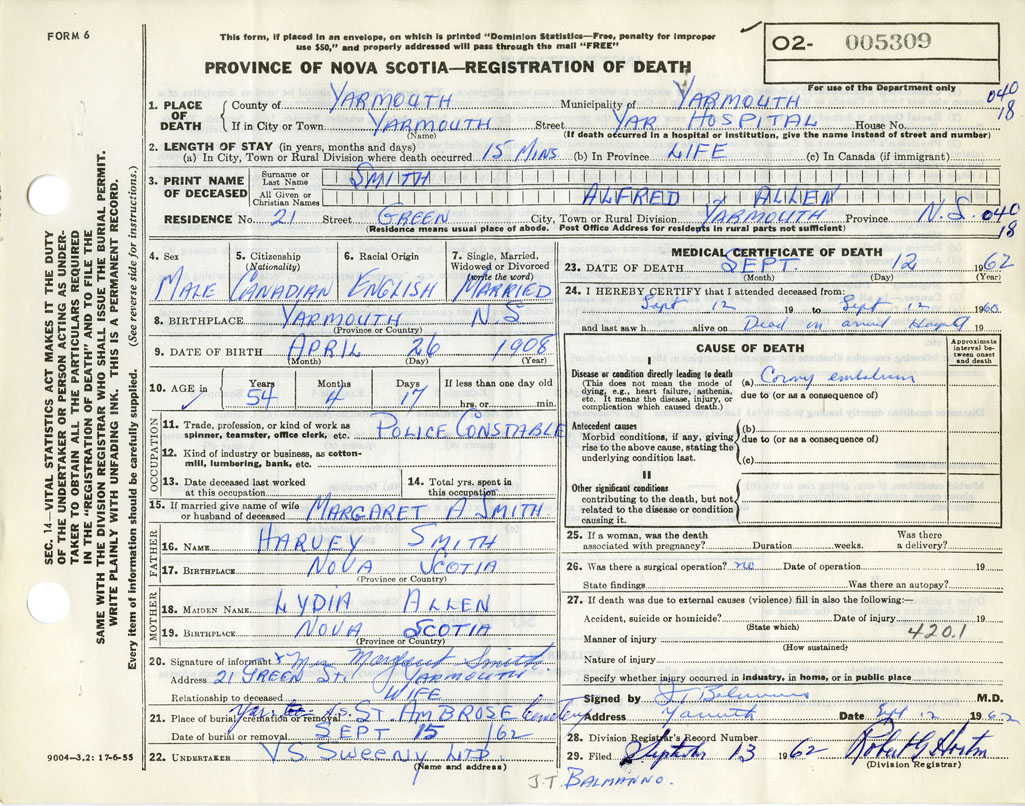 FORM 6
This form, if placed in an envelope, on which is printed "Dominion Statistics—Free, penalty for improper
use $50," and properly addressed will pass through the mail "FREE"
O2- 005309
PROVINCE OF NOVA SCOTIA—REGISTRATION OF DEATH
For use of the Department only
040
18
1. PLACE OF DEATH County of YARMOUTH Municipality of YARMOUTH
If in City or Town YARMOUTH Street YAR HOSPITAL House No.
(Name) (If death occurred in a hospital or institution, give the name instead of street and number)
2. LENGTH OF STAY (in years, months and days)
(a) In City, Town or Rural Division where death occurred 15 MINS (b) In Province LIFE (c) In Canada (if immigrant)
3. PRINT NAME OF DECEASED
Surname or Last Name SMITH
All Given or Christian Names ALFRED ALLEN
RESIDENCE No. 21 Street GREEN City, Town or Rural Division YARMOUTH Province N.S. 040
18
(Residence means usual place of abode. Post Office Address for residents in rural parts not sufficient)
4. Sex
MALE
5. Citizenship (Nationality)
CANADIAN
6. Racial Origin
ENGLISH
7. Single, Married, Widowed or Divorced (write the word)
MARRIED
8. BIRTHPLACE YARMOUTH N.S
(Province or Country)
9. DATE OF BIRTH APRIL 26 1908
(Month) (Day) (Year)
10. AGE in Years Months Days If less than one day old
54 4 17 hrs. or min.
OCCUPATION
11. Trade, profession, or kind of work as spinner, teamster, office clerk, etc. POLICE CONSTABLE
12. Kind of industry or business, as cotton-mill, lumbering, bank, etc.
13. Date deceased last worked at this occupation
14. Total yrs. spent in this occupation
15. If married give name of wife or husband of deceased MARGARET A SMITH
FATHER
16. NAME HARVEY SMITH
17. BIRTHPLACE NOVA SCOTIA
(Province or Country)
MOTHER
18. MAIDEN NAME LYDIA ALLEN
19. BIRTHPLACE NOVA SCOTIA
(Province or Country)
20. Signature of informant x Mrs Margaret Smith
Address 21 GREEN ST. YARMOUTH
Relationship to deceased WIFE
21. Place of burial, cremation or removal Yar. N.S. ST AMBROSE Cemetery
Date of burial or removal SEPT 15 /62
22. UNDERTAKER V.S. SWEENY LTD
(Name and address)
MEDICAL CERTIFICATE OF DEATH
23. DATE OF DEATH SEPT. 12 1962
(Month) (Day) (Year)
24. I HEREBY CERTIFY that I attended deceased from:
Sept 12 19 to Sept 12 196
and last saw h alive on Dead on arrival Hospital 19
CAUSE OF DEATH
Approximate interval between onset and death
I
Disease or condition directly leading to death
(This does not mean the mode of dying, e.g., heart failure, asthenia, etc. It means the disease, injury, or complication which caused death.)
(a) embolism
due to (or as a consequence of)
Antecedent causes
Morbid conditions, if any, giving rise to the above cause, stating the underlying condition last.
(b)
due to (or as a consequence of)
(c)
II
Other significant conditions
contributing to the death, but not related to the disease or condition causing it.
25. If a woman, was the death associated with pregnancy? Duration weeks. Was there a delivery?
26. Was there a surgical operation? no Date of operation 19
State findings Was there an autopsy?
27. If death was due to external causes (violence) fill in also the following:—
Accident, suicide or homicide? Date of injury 19
(State which)
420.1
Manner of injury
(How sustained)
Nature of injury
Specify whether injury occurred in industry, in home, or in public place
Signed by J. Balmanno M.D.
Address Yarmouth Date Sept 12 1962
28. Division Registrar's Record Number
29. Filed September 13 1962 Robert G Horton
(Division Registrar)
J.T. BALMANNO.
9004—3.2: 17-6-55
SEC. 14—VITAL STATISTICS ACT MAKES IT THE DUTY
OF THE UNDERTAKER OR PERSON ACTING AS UNDER-
TAKER TO OBTAIN ALL THE PARTICULARS REQUIRED
IN THE "REGISTRATION OF DEATH" AND TO FILE THE
SAME WITH THE DIVISION REGISTRAR WHO SHALL ISSUE THE BURIAL PERMIT.
WRITE PLAINLY WITH UNFADING INK. THIS IS A PERMANENT RECORD.
Every item of information should be carefully supplied. (See reverse side for instructions.)